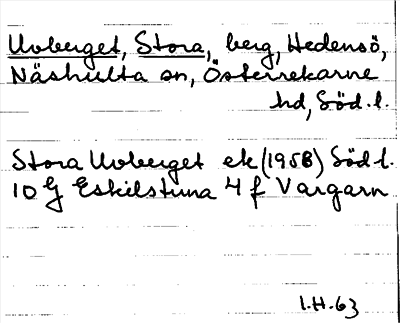 Uvberget, Stora, berg, Hedensö,
Näshulta sn, Österrekarne
hd, Söd. l.
Stora Uvberget ek (1958) Söd l.
10 G Eskilstuna 4 f Vargarn
I.H. 63